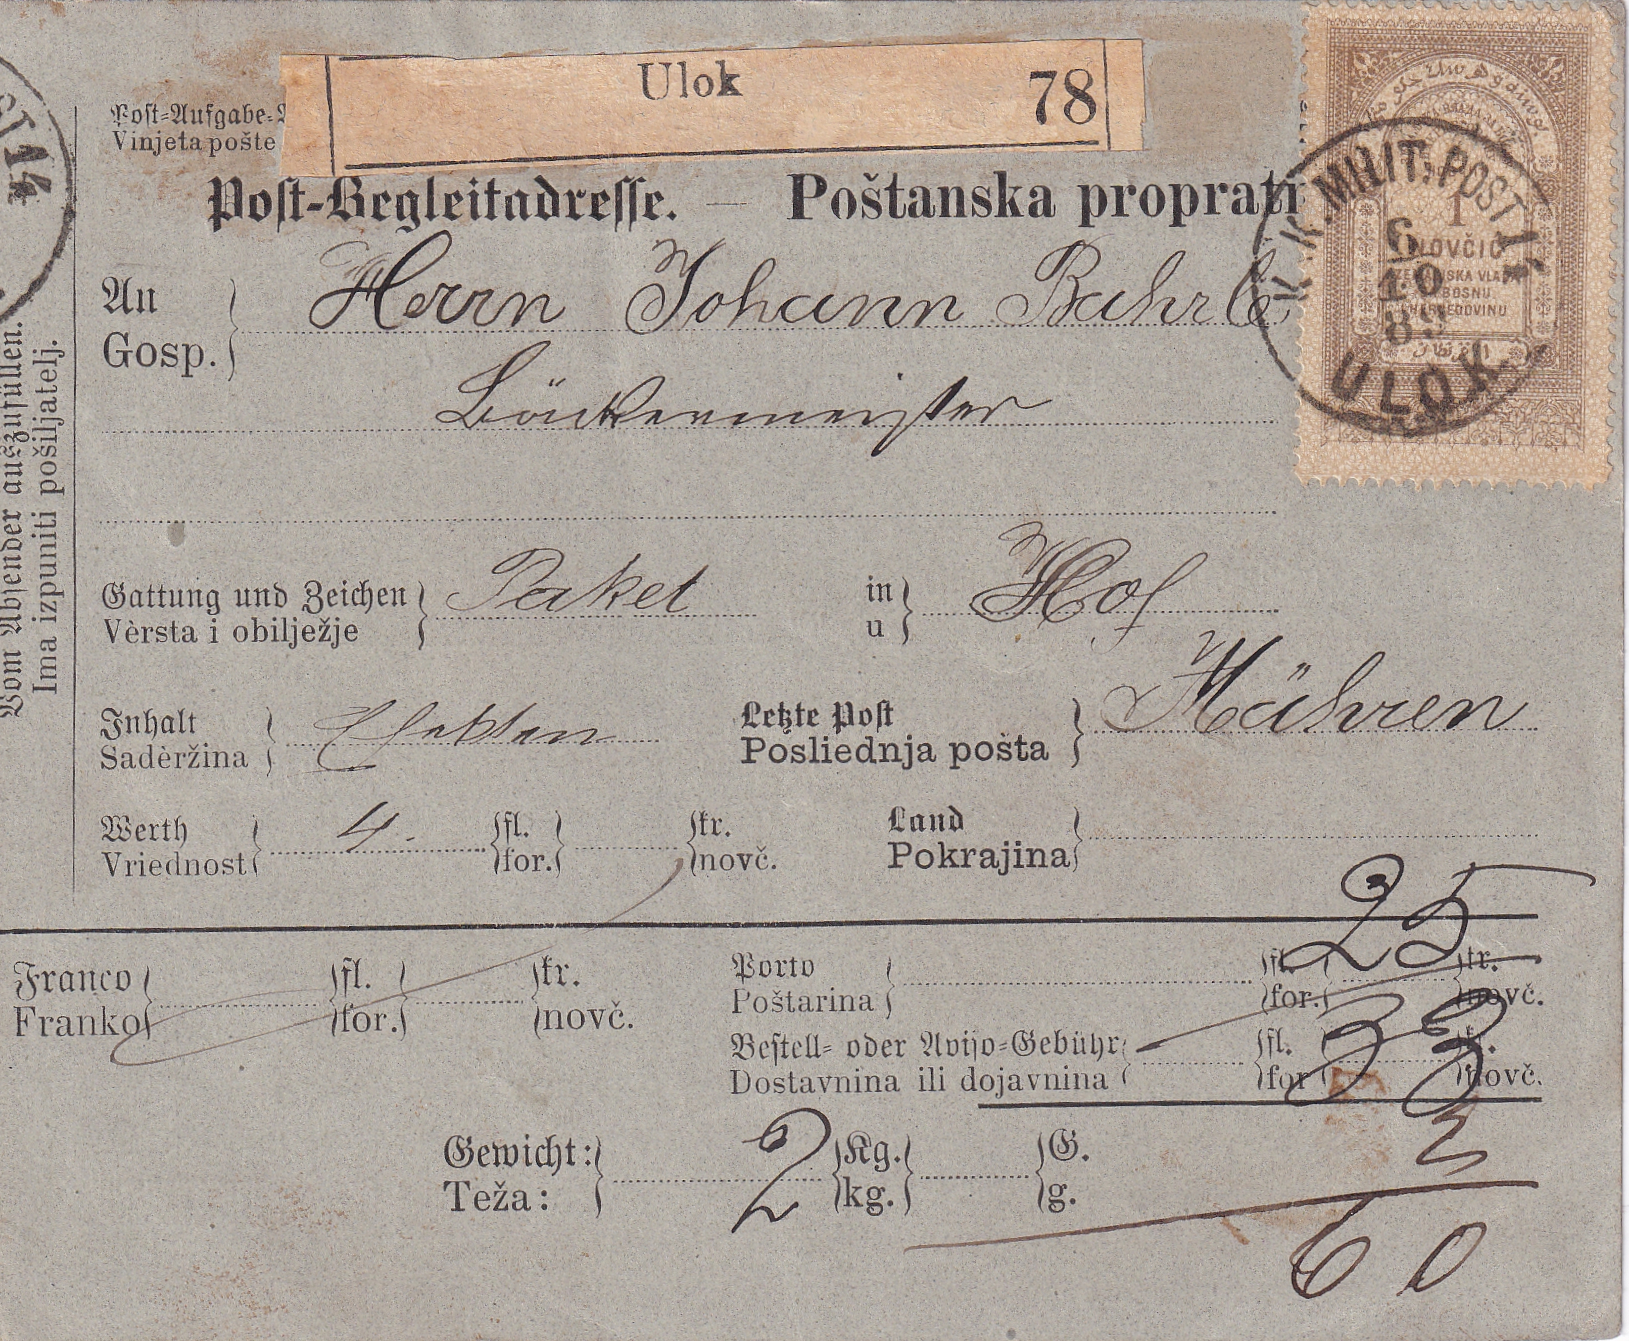 Ulok 78
Post-Aufgabe-
Vinjeta pošte
Post-Begleitadresse. — Poštanska proprati
K. K. MILIT. POST
6
10
ULOK
1
NOVČIĆ
ZEMALJSKA VLADA
BOSNU
HERCEGOVINU
ST 14
Vom Absender auszufüllen.
Ima izpuniti pošiljatelj.
An Herrn Johann
Gosp.
Bäckermeister
Gattung und Zeichen Paket in Hof
Vèrsta i obilježje u
Mähren
Inhalt Effekten Letzte Post
Sadèržina Posliednja pošta
Werth 4. fl. kr. Land
Vriednost for. novč. Pokrajina
25
Franco fl. kr. Porto fl. kr.
Franko for. novč. Poštarina for. novč.
33
Bestell- oder Aviso-Gebühr fl. k.
Dostavnina ili dojavnina for novč.
Gewicht: 2 Kg. G.
Teža: kg. g.
60